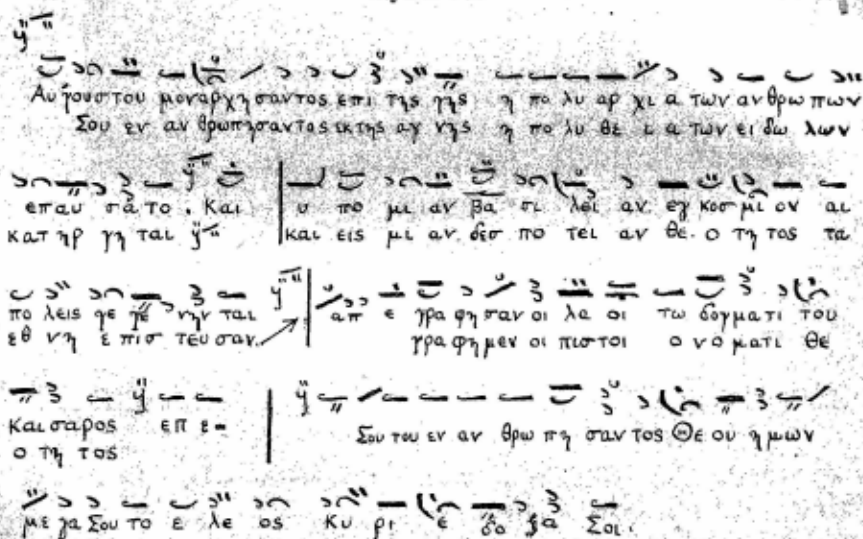 Αυγουστου μοναρχησαντος επι της γης η πο λυ αρ χι α των αν θρω πων
Σου εν αν θρωπησαντος εκ της αγ νης η πο λυ θε ι α των ει δω λων
επαυ σα το . Και υ πο μι αν βα σι λει αν εγ κοσ μι ον αι
κατ ηρ γη ται και εις μι αν δεσ πο τει αν θε ο τη τος τα
πο λεις γε γε νην ται απ ε γρα φη σαν οι λα οι τω δογματι του
εθ νη ε πισ τευ σαν. γρα φη μεν οι πιστοι ο νο ματι θε
Και σαρος επ ε-
ο τη τος Σου του εν αν θρω πη σαν τος Θε ου η μων
με γα Σου το ε λε ος Κυ ρι ε δο ξα Σοι.